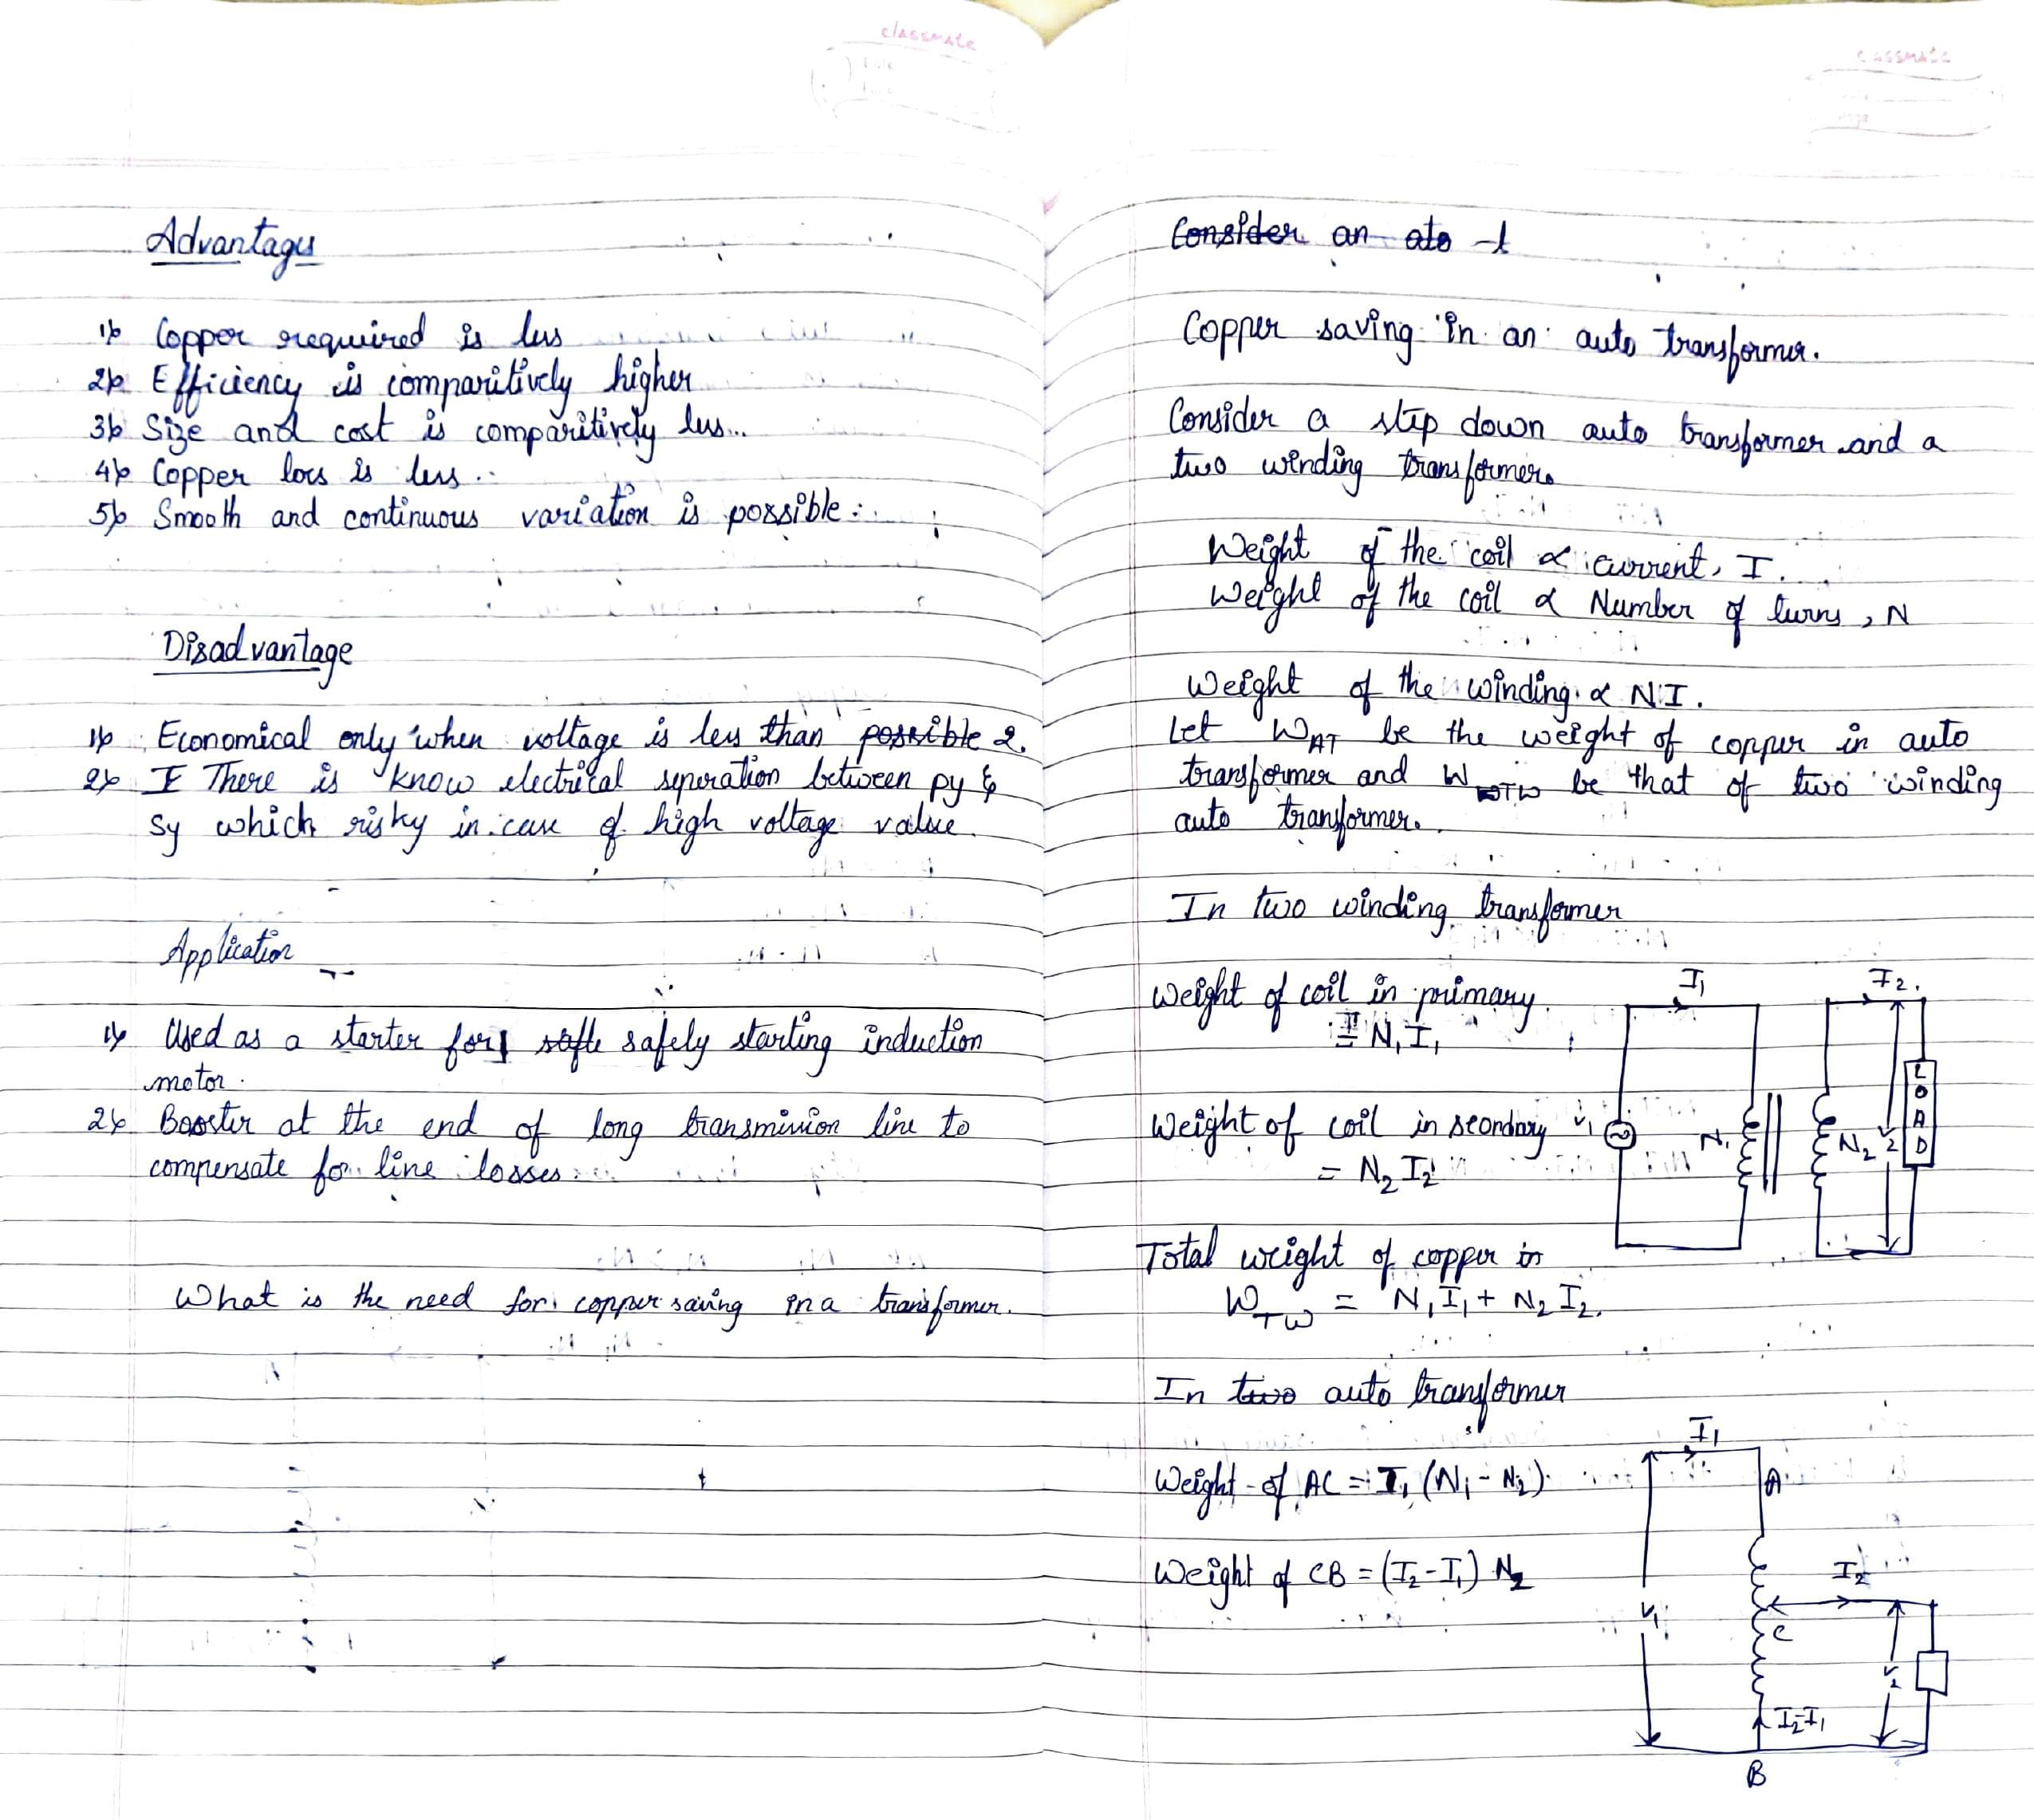 classmate
Advantages
1) Copper required is less
2) Efficiency is comparitively higher
3) Size and cost is comparitively less..
4) Copper loss is less.
5) Smooth and continuous variation is possible.
Disadvantage
1) Economical only when voltage is less than possible 2.
2) I There is know electrical seperation between py &
sy which risky in case of high voltage value.
Application
1) Used as a starter for safte safely starting induction
motor.
2) Booster at the end of long transmission line to
compensate for line losses
What is the need for copper saving in a transformer.
classmate
Consider an ato t
Copper saving in an auto transformer.
Consider a step down auto transformer and a
two winding transformer.
Weight of the coil ∝ current, I.
Weight of the coil ∝ Number of turns, N
Weight of the winding ∝ NI.
Let W_AT be the weight of copper in auto
transformer and W_TW be that of two winding
auto transformer.
In two winding transformer
Weight of coil in primary
= N₁I₁
Weight of coil in secondary
= N₂I₂
I₁ I₂.
V₁ N₁ N₂ V₂ LOAD
Total weight of copper in
W_TW = N₁I₁ + N₂I₂.
In two auto transformer
Weight of AC = I₁ (N₁ - N₂)
Weight of CB = (I₂-I₁) N₂
I₁
A
I₂
V₁
C
V₂
I₂-I₁
B